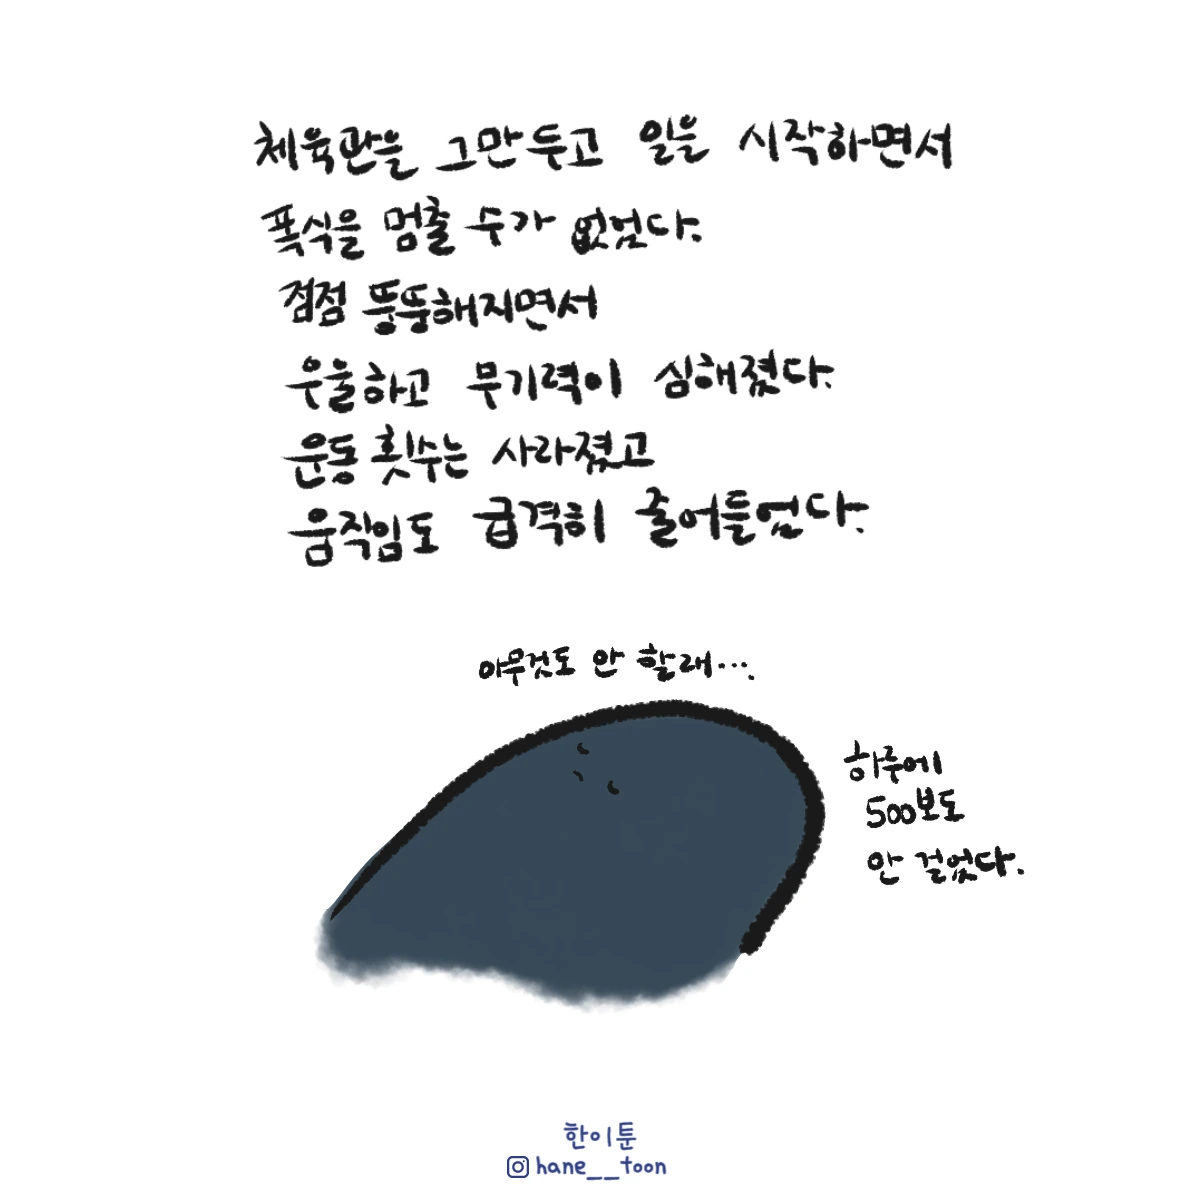 체육관을 그만두고 일을 시작하면서
폭식을 멈출 수가 없었다.
점점 뚱뚱해지면서
우울하고 무기력이 심해졌다.
운동 횟수는 사라졌고
움직임도 급격히 줄어들었다.
아무것도 안 할래...
하루에
500보도
안 걸었다.
한이툰
hane__toon